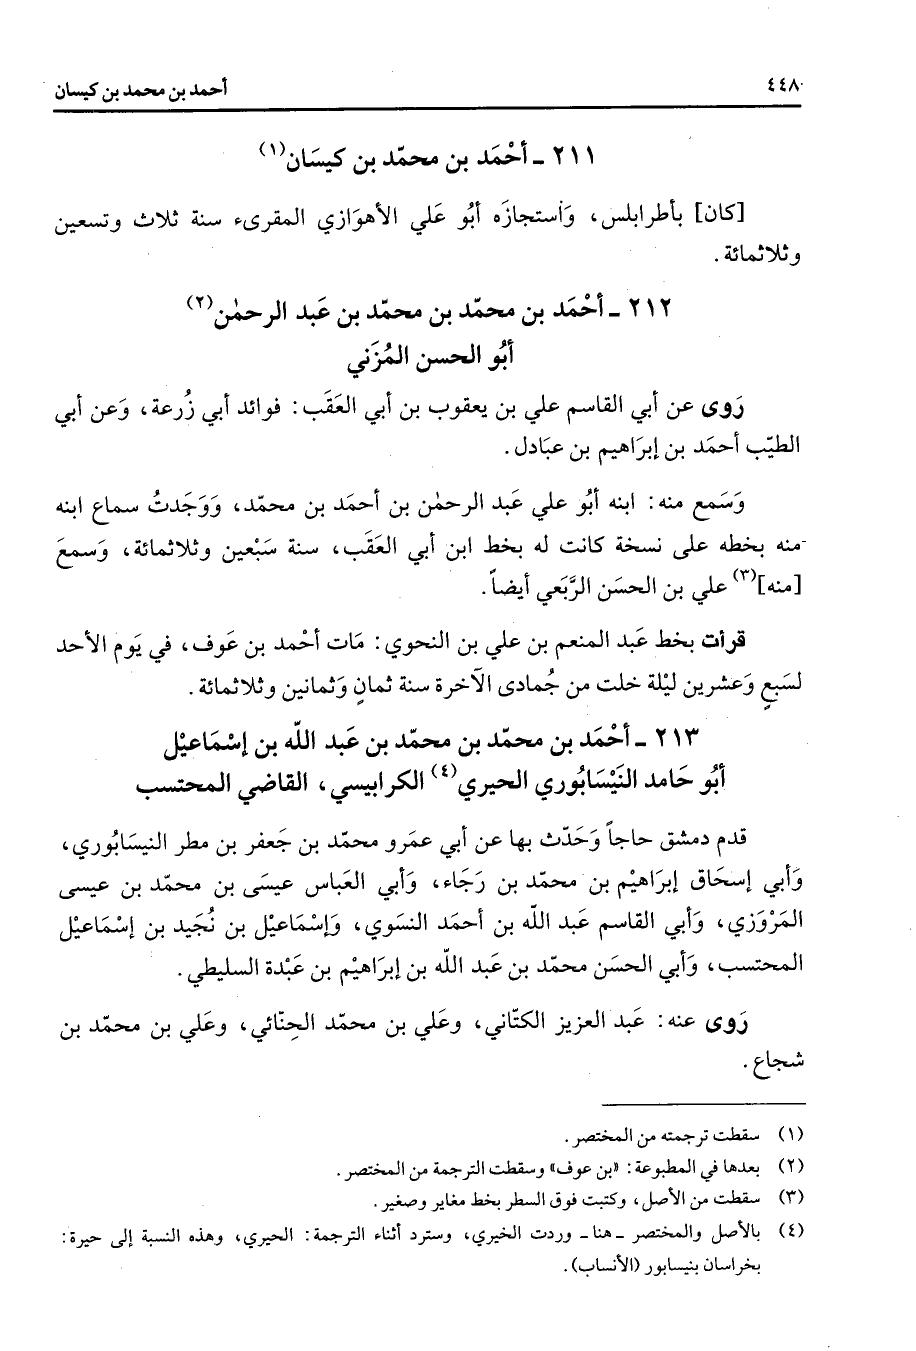 ٤٤٨ أحمد بن محمد بن كيسان
٢١١ ـ أحْمَد بن محمّد بن كيسَان(١)
[كان] بأطرابلس، وَاستجازَه أبُو عَلي الأهوَازي المقرىء سنة ثلاث وتسعين
وثلاثمائة.
٢١٢ ـ أحْمَد بن محمّد بن محمّد بن عَبد الرحمٰن(٢)
أبُو الحسن المُزَني
رَوى عن أبي القاسم علي بن يعقوب بن أبي العَقَب: فوائد أبي زُرعة، وَعن أبي
الطيّب أحمَد بن إبرَاهيم بن عبَادل.
وَسَمع منه: ابنه أبُو علي عَبد الرحمٰن بن أحمَد بن محمّد، وَوَجَدتُ سماع ابنه
منه بخطه على نسخة كانت له بخط ابن أبي العَقَب، سنة سَبْعين وثلاثمائة، وَسمعَ
[منه](٣) علي بن الحسَن الرَّبَعي أيضاً.
قرأت بخط عَبد المنعم بن علي بن النحوي: مَات أحْمد بن عَوف، في يَوم الأحد
لسَبعٍ وَعشرين ليْلة خلت من جُمادى الآخرة سنة ثمانٍ وَثمانين وثلاثمائة.
٢١٣ ـ أحْمَد بن محمّد بن محمّد بن عَبد اللّه بن إسْمَاعيْل
أبُو حَامد النَيْسَابُوري الحيري(٤) الكرابيسي، القاضي المحتسب
قدم دمشق حاجاً وَحَدّث بها عن أبي عمَرو محمّد بن جَعفر بن مطر النيسَابُوري،
وَأبي إسحَاق إبرَاهيْم بن محمّد بن رَجَاء، وَأبي العَباس عيسَى بن محمّد بن عيسى
المَرْوَزي، وَأبي القاسم عَبد اللّه بن أحمَد النسَوي، وَإسْمَاعيْل بن نُجَيد بن إسْمَاعيْل
المحتسب، وَأبي الحسَن محمّد بن عَبد اللّه بن إبرَاهيْم بن عَبْدة السليطي.
رَوى عنه: عَبد العزيز الكتّاني، وعَلي بن محمّد الحِنّائي، وعَلي بن محمّد بن
شجاع.
(١) سقطت ترجمته من المختصر.
(٢) بعدها في المطبوعة: «بن عوف» وسقطت الترجمة من المختصر.
(٣) سقطت من الأصل، وكتبت فوق السطر بخط مغاير وصغير.
(٤) بالأصل والمختصر ـ هنا ـ وردت الخيري، وسترد أثناء الترجمة: الحيري، وهذه النسبة إلى حيرة:
بخراسان بنيسابور (الأنساب).